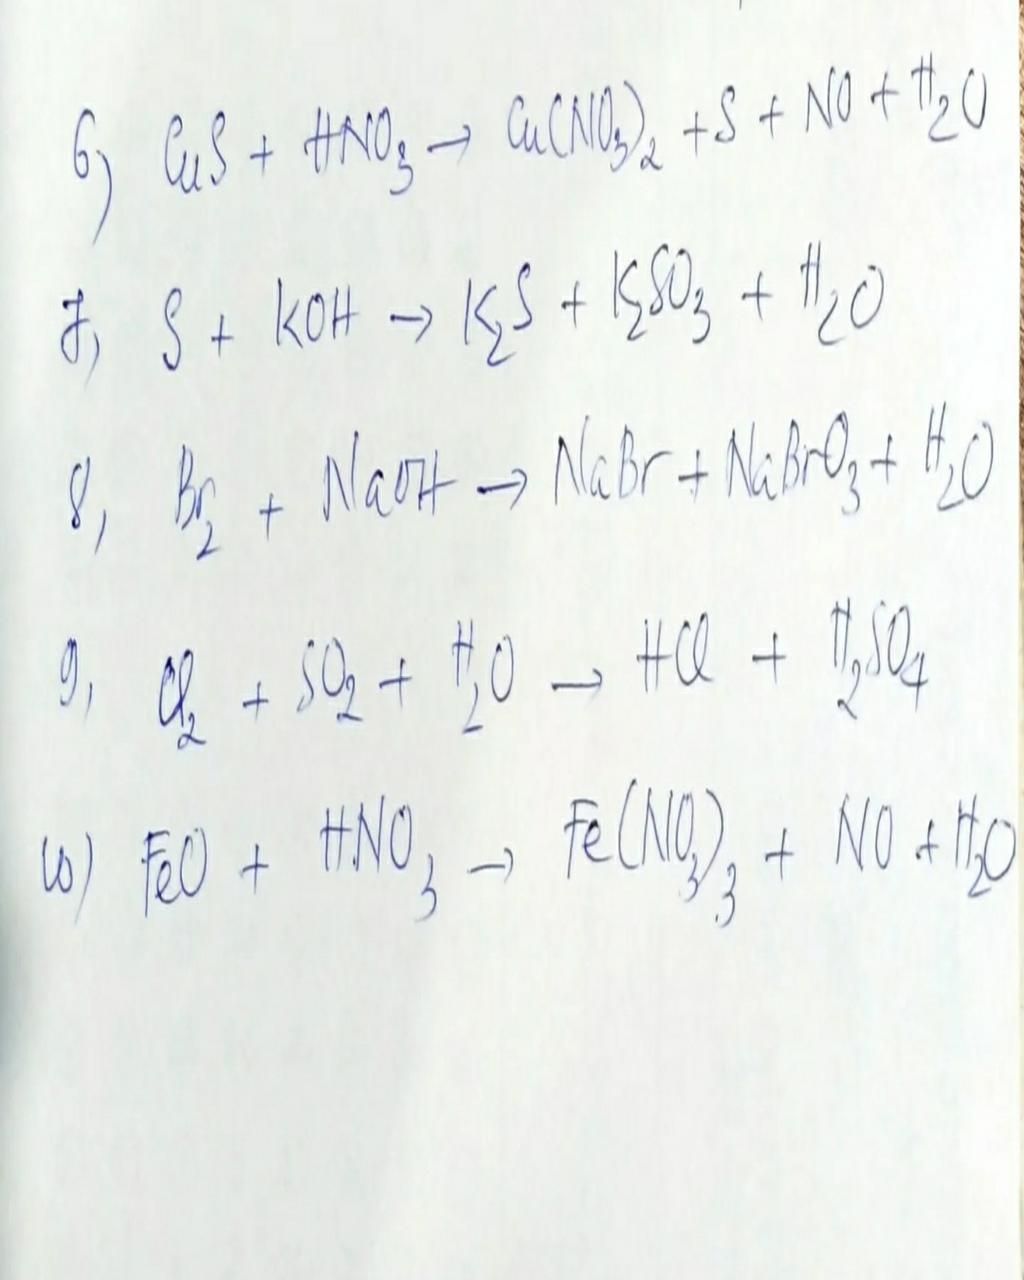 6) CuS + HNO₃ → Cu(NO₃)₂ + S + NO + H₂O
7, S + KOH → K₂S + K₂SO₃ + H₂O
8, Br₂ + NaOH → NaBr + NaBrO₃ + H₂O
9, Cl₂ + SO₂ + H₂O → HCl + H₂SO₄
10) FeO + HNO₃ → Fe(NO₃)₃ + NO + H₂O